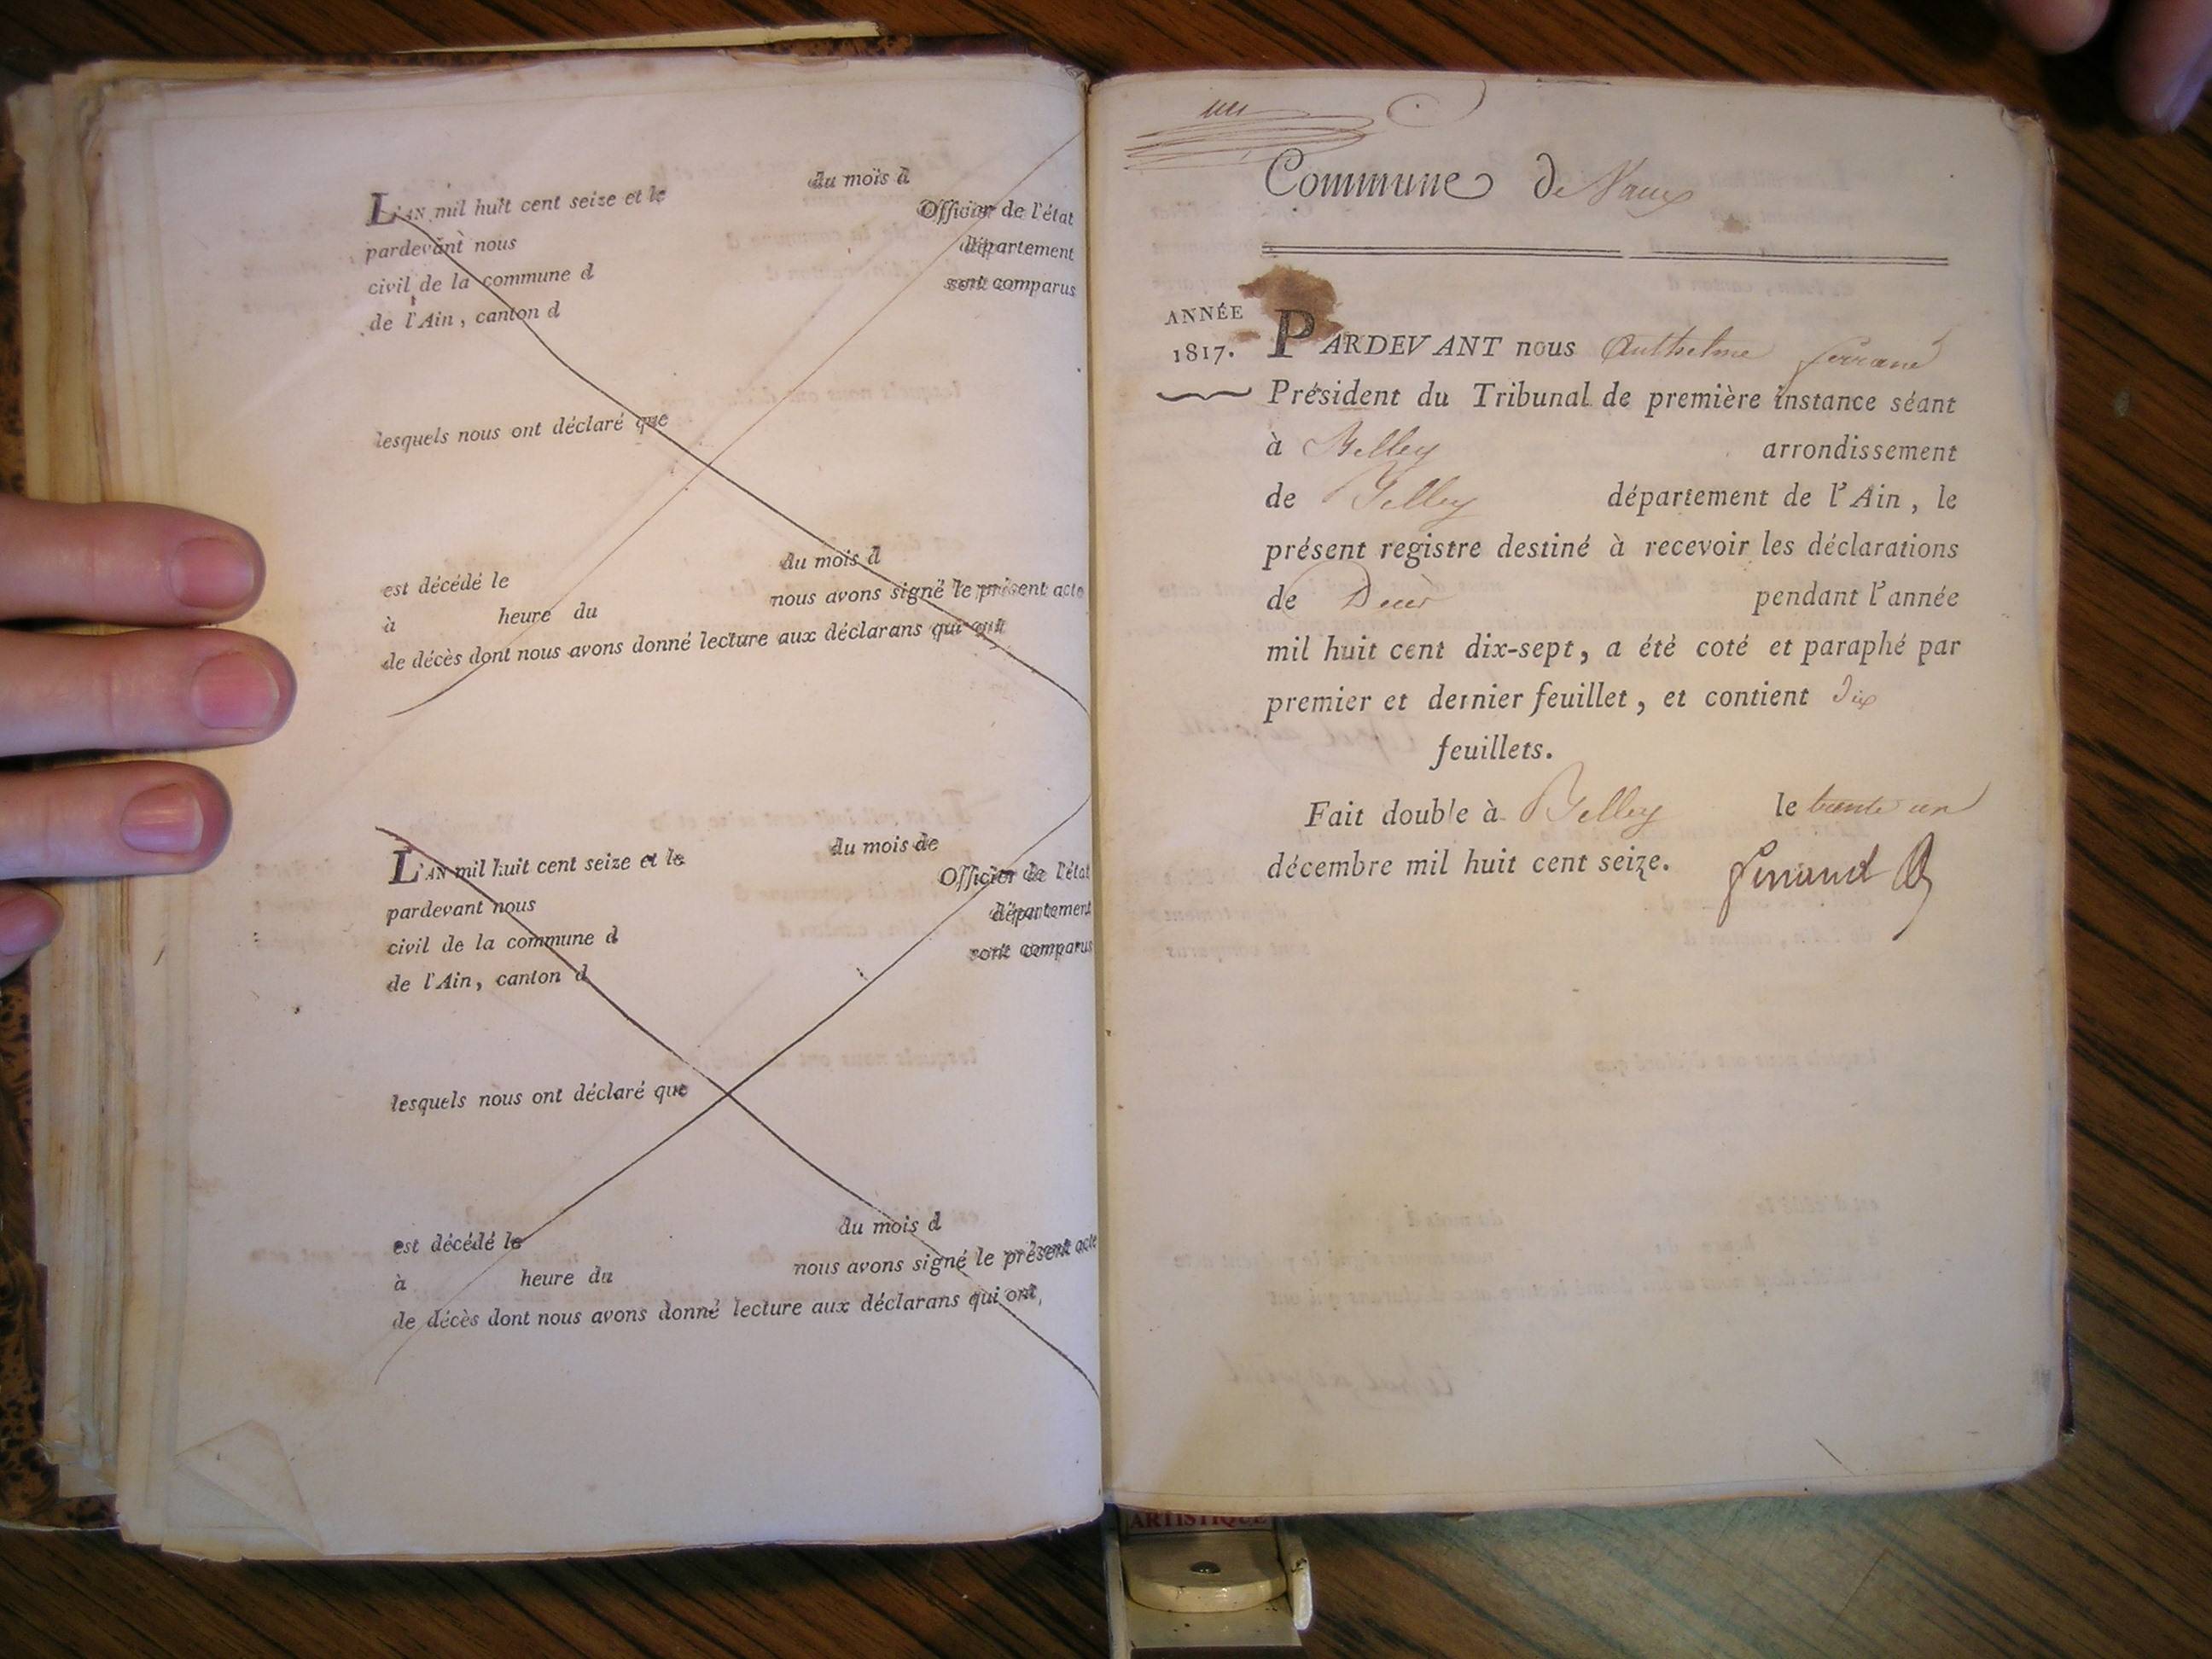 L'AN mil huit cent seize et le du mois d
pardevant nous Officier de l'état
civil de la commune d département
de l'Ain, canton d sont comparus
lesquels nous ont déclaré que
est décédé le du mois d
à heure du nous avons signé le présent acte
de décès dont nous avons donné lecture aux déclarans qui ont
L'AN mil huit cent seize et le du mois de
pardevant nous Officier de l'état
civil de la commune d département
de l'Ain, canton d sont comparus
lesquels nous ont déclaré que
est décédé le du mois d
à heure du nous avons signé le présent acte
de décès dont nous avons donné lecture aux déclarans qui ont,
un
Commune de Vaux
ANNÉE
1817.
PARDEVANT nous Anthelme ferrand
Président du Tribunal de première instance séant
à Belley arrondissement
de Belley département de l'Ain, le
présent registre destiné à recevoir les déclarations
de Décès pendant l'année
mil huit cent dix-sept, a été coté et paraphé par
premier et dernier feuillet, et contient dix
feuillets.
Fait double à Belley le trente un
décembre mil huit cent seize.
ferrand
ARTISTIQUE